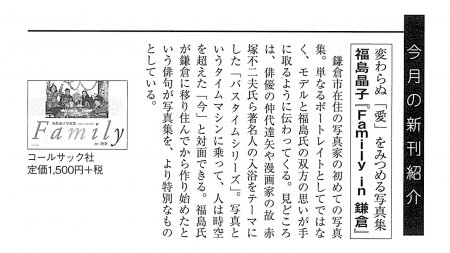 今月の新刊紹介
変わらぬ「愛」をみつめる写真集
福島晶子『Family in 鎌倉』
鎌倉市在住の写真家の初めての写真
集。単なるポートレイトとしてではな
く、モデルと福島氏の双方の思いが手
に取るように伝わってくる。見どころ
は、俳優の仲代達矢や漫画家の故 赤
塚不二夫氏ら著名人の入浴をテーマに
した「バスタイムシリーズ」。写真と
いうタイムマシンに乗って、人は時空
を超えた「今」と対面できる。福島氏
が鎌倉に移り住んでから作り始めたと
いう俳句が写真集を、より特別なもの
としている。
Family
in 鎌倉
コールサック社
定価1,500円+税